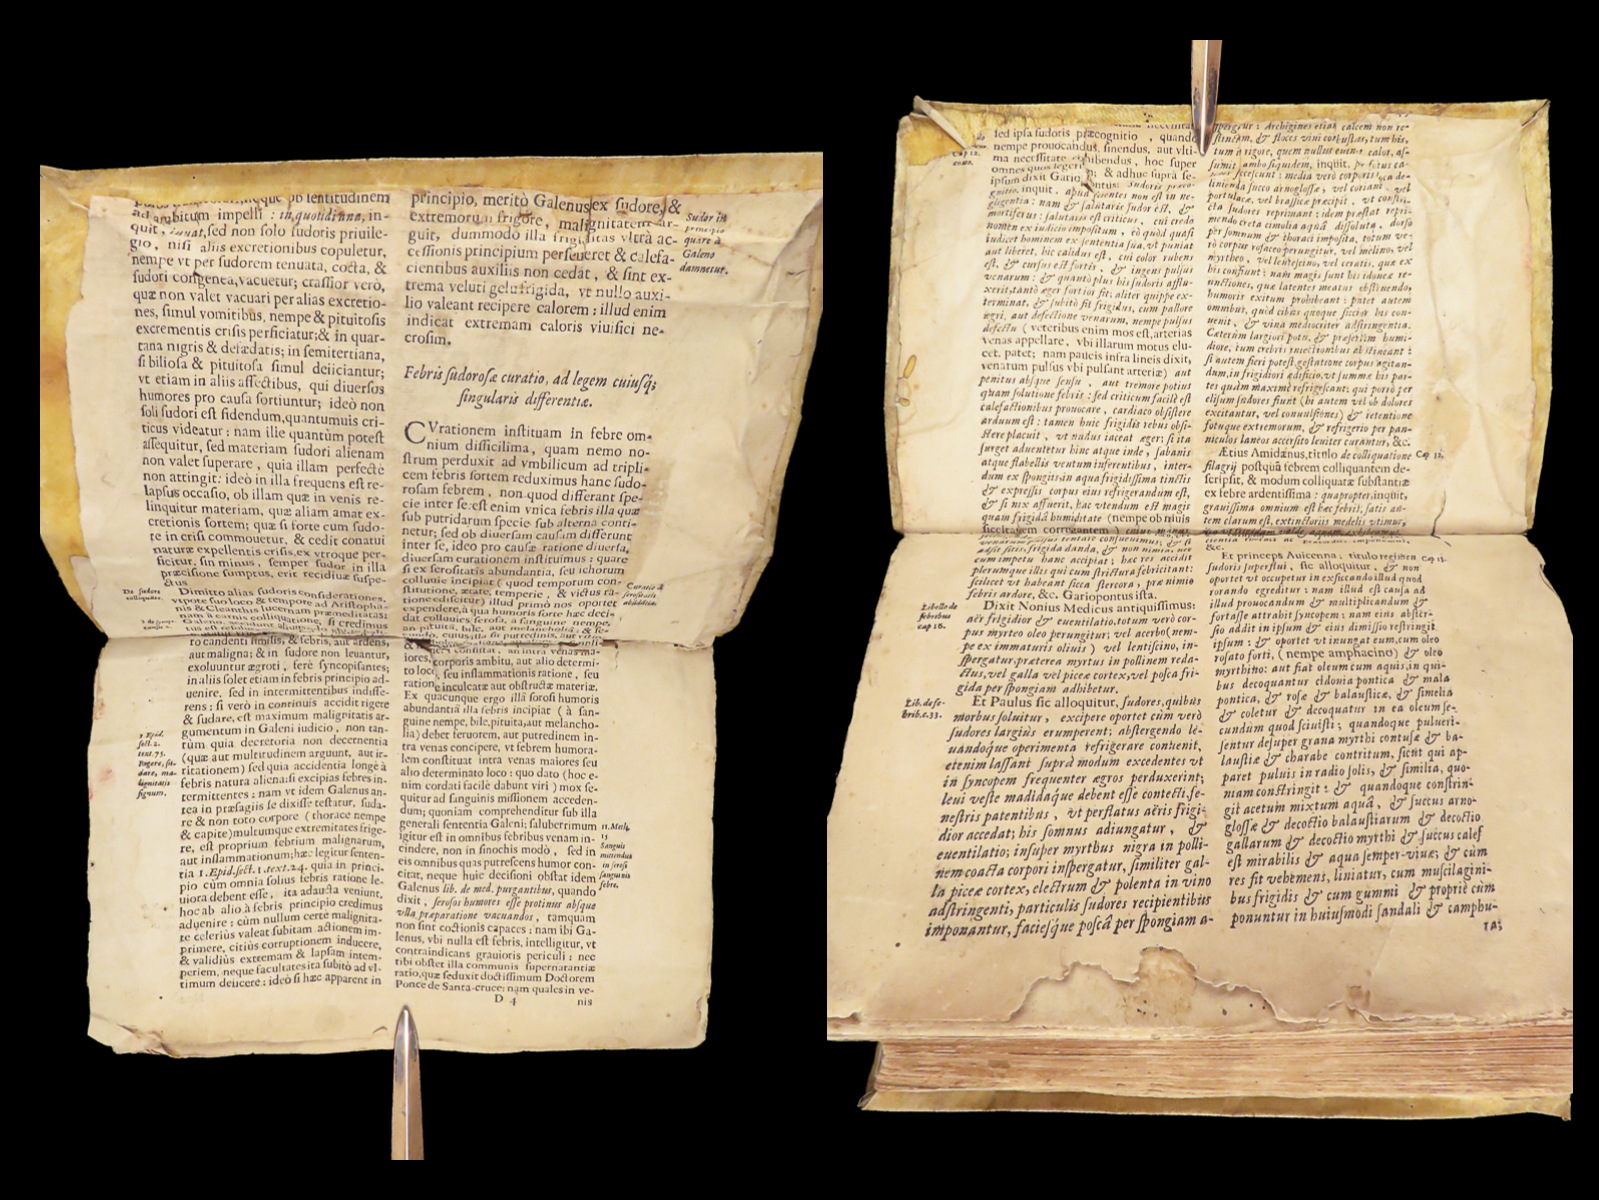 ad ambitum impelli : in quotidiana, in-
quit, iuuat, ſed non ſolo ſudoris priuile-
gio, niſi aliis excretionibus copuletur,
nempe vt per ſudorem tenuata, cocta, &
ſudori congenea, vacuetur; craſſior verò,
quæ non valet vacuari per alias excretio-
nes, ſimul vomitibus, nempe & pituitoſis
excrementis criſis perficiatur; & in quar-
tana nigris & defædatis; in ſemitertiana,
ſi bilioſa & pituitoſa ſimul deiiciantur;
vt etiam in aliis affectibus, qui diuerſos
humores pro cauſa ſortiuntur; ideò non
ſoli ſudori eſt fidendum, quantumuis cri-
ticus videatur: nam ille quantùm poteſt
aſſequitur, ſed materiam ſudori alienam
non valet ſuperare, quia illam perfectè
non attingit: ideò in illa frequens eſt re-
lapſus occaſio, ob illam quæ in venis re-
linquitur materiam, quæ aliam amat ex-
cretionis ſortem; quæ ſi forte cum ſudo-
re in criſi commouetur, & cedit conatui
naturæ expellentis criſis, ex vtroque per-
ficitur, ſin minus, ſemper ſudor in illa
præciſione ſumptus, erit recidiuæ ſuſpe-
ctus.
De ſudore
colliquat.
Dimitto alias ſudoris conſiderationes,
vtpote ſuo loco & tempore ad Ariſtopha-
nis & Cleanthis lucernam præmeditatas:
ro candenti ſimilis, & febris, aut ardens,
aut maligna; & in ſudore non leuantur,
exoluuntur ægroti, ferè ſyncopiſantes;
in aliis ſolet etiam in febris principio ad-
uenire, ſed in intermittentibus indiffe-
rens: ſi verò in continuis accidit rigere
& ſudare, eſt maximum malignitatis ar-
gumentum in Galeni iudicio, non tan-
tùm quia decretoria non decernentia
(quæ aut multitudinem arguunt, aut ir-
ritationem) ſed quia accidentia longè à
febris natura aliena: ſi excipias febres in-
termittentes: nam vt idem Galenus an-
tea in præſagiis ſe dixiſſe teſtatur, ſuda-
re & non toto corpore (thorace nempe
& capite) multumque extremitates frige-
re, eſt proprium febrium malignarum,
aut inflammationum; hæc legitur ſenten-
tia 1. Epid. ſect. 1. text. 24. quia in princi-
pio cùm omnia ſolius febris ratione le-
uiora debent eſſe, ita adaucta veniunt,
hoc ab alio à febris principio credimus
aduenire: cùm nullum certè maligníta-
te celeriùs valeat ſubitam actionem im-
primere, citiùs corruptionem inducere,
& validiùs extremam & lapſam intem-
periem, neque facultates ita ſubitò ad vl-
timum deiicere: ideò ſi hæc apparent in
3 Epid.
ſect. 2.
text. 75.
Rigere, ſu-
dare, ma-
lignitatis
ſignum.
principio, meritò Galenus ex ſudore, &
extremorum frigore, malignitatem ar-
guit, dummodo illa frigiditas vltrà ac-
ceſſionis principium perſeueret & calefa-
cientibus auxiliis non cedat, & ſint ex-
trema veluti gelu frigida, vt nullo auxi-
lio valeant recipere calorem: illud enim
indicat extremam caloris viuifici ne-
croſim.
Sudor in
principio
quare à
Galeno
damnetur.
Febris ſudoroſæ curatio, ad legem cuiuſq;
ſingularis differentiæ.
CVrationem inſtituam in febre om-
nium difficilima, quam nemo no-
ſtrum perduxit ad vmbilicum ad tripli-
cem febris ſortem reduximus hanc ſudo-
roſam febrem, non quod differant ſpe-
cie inter ſe: eſt enim vnica febris illa quæ
ſub putridarum ſpecie ſub alterna conti-
netur; ſed ob diuerſam cauſam differunt
inter ſe, ideo pro cauſæ ratione diuerſa,
diuerſam curationem inſtituimus: quare
ſi ex ſeroſitatis abundantia, ſeu ichorum
colluuie incipiat (quod temporum con-
ſtitutione, ætate, temperie, & victus ra-
tione ediſcitur) illud primò nos oportet
expendere, à qua humoris ſorte hæc deci-
dat colluuies ſeroſa, a ſanguine nempe,
iores, corporis ambitu, aut alio determi-
to loco, ſeu inflammationis ratione, ſeu
ratione inculcatæ aut obſtructæ materiæ.
Ex quacunque ergo illâ ſeroſi humoris
abundantiâ illa febris incipiat (à ſan-
guine nempe, bile, pituita, aut melancho-
lia) debet feruorem, aut putredinem in-
tra venas concipere, vt febrem humora-
lem conſtituat intra venas maiores ſeu
alio determinato loco: quo dato (hoc e-
nim cordati facilè dabunt viri) mox ſe-
quitur ad ſanguinis miſſionem acceden-
dum; quoniam comprehenditur ſub illa
generali ſententia Galeni; ſaluberrimum
igitur eſt in omnibus febribus venam in-
cindere, non in ſinochis modò, ſed in
eis omnibus quas putreſcens humor con-
citat, neque huic deciſioni obſtat idem
Galenus lib. de med. purgantibus, quando
dixit, ſeroſos humores eſſe protinus abſque
vlla præparatione vacuandos, tamquam
non ſint coctionis capaces: nam ibi Ga-
lenus, vbi nulla eſt febris, intelligitur, vt
contraindicans grauioris periculi: nec
tibi obſtet illa communis ſupernatantiæ
ratio, quæ ſeduxit doctiſſimum Doctorem
Ponce de Santa-cruce: nam quales in ve-
11. Meth.
15
Sanguis
mittendus
in ſeroſi
ſanguinis
febre.
D 4
nis
ſed ipſa ſudoris præcognitio, quando
nempe prouocandus, ſinendus, aut vlti-
ma neceſſitate cohibendus, hoc ſuper
omnes quos legeri
mortiferus: ſalutaris eſt criticus, cui credo
nomen ex iudicio impoſitum, eò quòd quaſi
iudicet hominem ex ſententia ſua, vt puniat
aut liberet, hic calidus eſt, cui color rubens
eſt, & curſus eſt fortis, & ingens pulſus
venarum: & quantò plus his ſudoris afflu-
xerit, tantò æger fortior fit: aliter quippe ex-
terminat, & ſubitò fit frigidus, cum pallore
ægri, aut defectione venarum, nempe pulſus
defectu (veteribus enim mos eſt, arterias
venas appellare, vbi illarum motus elu-
cet, patet; nam paucis infra lineis dixit,
venarum pulſus vbi pulſant arteriæ) aut
penitus abſque ſenſu, aut tremore potius
quam ſolutione febris: ſed criticum facilè eſt
calefactionibus prouocare, cardiaco obſiſtere
arduum eſt: tamen huic frigidis rebus obſi-
ſtere placuit, vt nudus iaceat æger; ſi ita
ſurget aduentetur hinc atque inde, ſabanis
atque flabellis ventum inferentibus, inter-
dum ex ſpongiis in aqua frigidiſſima tinctis
& expreſſis corpus eius refrigerandum eſt,
& ſi nix affuerit, hac vtendum eſt magis
quam frigidâ humiditate (nempe ob niuis
ſiccitatem
cum impetu hanc accipiat; hæc res accidit
plerumque illis qui cum ſtrictura febricitant:
ſcilicet vt habeant ſicca ſtercora, præ nimio
febris ardore, &c. Gariopontus iſta.
Libello de
febribus
cap 18.
Dixit Nonius Medicus antiquiſſimus:
aër frigidior & euentilatio, totum verò cor-
pus myrteo oleo perungitur; vel acerbo (nem-
pe ex immaturis oliuis) vel lentiſcino, in-
ſpergatur, præterea myrtus in pollinem reda-
ctus, vel galla vel piceæ cortex, vel poſca fri-
gida per ſpongiam adhibetur.
Lib. de fe-
brib. c. 33.
Et Paulus ſic alloquitur, ſudores, quibus
morbus ſoluitur, excipere oportet cùm verò
ſudores largiùs erumperent; abſtergendo le-
uandoque operimenta refrigerare conuenit,
etenim laſſant ſupra modum excedentes vt
in ſyncopem frequenter ægros perduxerint;
leui veſte madidaque debent eſſe contecti, fe-
neſtris patentibus, vt perflatus aëris frigi-
dior accedat; his ſomnus adiungatur, &
euentilatio; inſuper myrthus nigra in polli-
nem coacta corpori inſpergatur, ſimiliter gal-
la piceæ cortex, electrum & polenta in vino
adſtringenti, particulis ſudores recipientibus
imponantur, facieſque poſcâ per ſpongiam a-
ſpergatur: Archigines etiam calcem non re-
linienda ſucco arnogloſſæ, vel coriani, vel
portulacæ, vel braſſicæ præcipit, vt conſtri-
cta ſudores reprimant: idem præſtat repri-
mendo creta cimolia aquâ diſſoluta, dorſo
per ſomnum & thoraci impoſita, totum ve-
rò corpus roſaceo perungitur, vel melino, vel
myrtheo, vel lentiſcino, vel ceratis, quæ ex
his conſtant: nam magis ſunt his idoneæ re-
unctiones, quæ latentes meatus obſtinendo,
humoris exitum prohibeant: patet autem
omnibus, quid cibus quoque ſiccior his con-
uenit, & vina mediocriter adſtringentia.
Cæterùm largiori potu, & præſertim humi-
diore, tum crebris iniectionibus abſtineant:
ſi autem fieri poteſt geſtatione corpus agitan-
dum, in frigidiori ædificio, vt ſummæ his par-
tes quàm maximè refrigeſcant; qui porrò per
eliſum ſudores fiunt (hi autem vel ob dolores
excitantur, vel conuulſiones) & retentione
fotuque extremorum, & refrigerio per pan-
niculos laneos accerſito leniter curantur, &c.
Cap. 32.
Ætius Amidanus, titulo de colliquatione
filagrij poſtquâ febrem colliquantem de-
ſcripſit, & modum colliquatæ ſubſtantiæ
ex febre ardentiſſima: quapropter, inquit,
grauiſſima omnium eſt hæc febrit, ſatis au-
tem clarum eſt, extinctoriis medelis vtimur,
&c.
Et princeps Auicenna: titulo regimen
ſudoris ſuperflui, ſic alloquitur, & non
oportet vt occupetur in exſiccando illud quod
rorando egreditur: nam illud eſt cauſa ad
illud prouocandum & multiplicandum &
fortaſſe attrahit ſyncopem: nam eius abſter-
ſio addit in ipſum & eius dimiſſio reſtringit
ipſum: & oportet vt inungat eum, cum oleo
roſato forti, (nempe amphacino) & oleo
myrthino: aut fiat oleum cum aquis, in qui-
bus decoquantur cidonia pontica & mala
pontica, & roſæ & balauſticæ, & ſimilia
& coletur & decoquatur in ea oleum ſe-
cundùm quod ſciuiſti; quandoque pulueri-
ſentur deſuper grana myrthi contuſa & ba-
lauſtiæ & charabe contritum, ſicut qui ap-
paret puluis in radio ſolis, & ſimilia, quo-
niam conſtringit: & quandoque conſtrin-
git acetum mixtum aquâ, & ſuccus arno-
gloſſæ & decoctio balauſtiarum & decoctio
gallarum & decoctio myrthi & ſuccus calef
eſt mirabilis & aqua ſemper-viuæ; & cùm
res fit vehemens, liniatur, cum muſcilagini-
bus frigidis & cum gummi & propriè cùm
ponuntur in huiuſmodi ſandali & camphu-
ra;